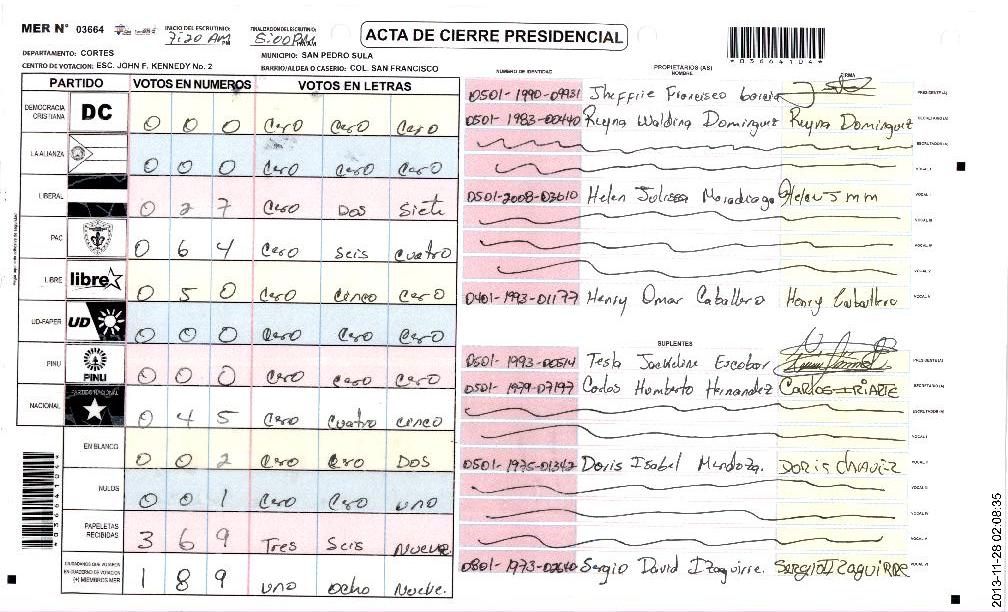 MER N° 03664 INICIO DEL ESCRUTINIO: 7:20 AM FINALIZACION DEL ESCRUTINIO: 5:00 PM
ACTA DE CIERRE PRESIDENCIAL
*03664104*
DEPARTAMENTO: CORTES MUNICIPIO: SAN PEDRO SULA
CENTRO DE VOTACION: ESC. JOHN F. KENNEDY No. 2 BARRIO/ALDEA O CASERIO: COL. SAN FRANCISCO
PARTIDO VOTOS EN NUMEROS VOTOS EN LETRAS
DEMOCRACIA CRISTIANA DC 0 0 0 Cero Cero Cero
LA ALIANZA 0 0 0 Cero Cero Cero
LIBERAL 0 2 7 Cero Dos Siete
PAC 0 6 4 Cero Seis Cuatro
LIBRE libre 0 5 0 Cero Cinco Cero
UD-FAPER UD 0 0 0 Cero Cero Cero
PINU PINU 0 0 0 Cero Cero Cero
NACIONAL PARTIDO NACIONAL 0 4 5 Cero Cuatro Cinco
EN BLANCO 0 0 2 Cero Cero Dos
NULOS 0 0 1 Cero Cero uno
PAPELETAS RECIBIDAS 3 6 9 Tres Seis Nueve
CIUDADANOS QUE VOTARON EN CUADERNO DE VOTACION (+) MIEMBROS MER 1 8 9 uno Ocho Nueve.
*03664104*
PROPIETARIOS (AS)
NUMERO DE IDENTIDAD NOMBRE FIRMA
0501-1990-09931 Francisco Garcia PRESIDENTE(A)
0501-1983-00440 Reyna Waldina Dominguez Reyna Dominguez SECRETARIO(A)
ESCRUTADOR (A)
VOCAL I
0501-2008-03610 Helen Julissa VOCAL II
VOCAL III
VOCAL IV
VOCAL V
0401-1993-01177 Henry Omar Caballero Henry Caballero
SUPLENTES
0501-1993-00514 Tesla Jackeline Escobar PRESIDENTE(A)
0501-1979-07197 Carlos Humberto Hernandez CARLOS IRIARTE SECRETARIO(A)
ESCRUTADOR (A)
VOCAL I
0501-1975-01342 Doris Isabel Mendoza. DORIS CHAVEZ VOCAL II
VOCAL III
VOCAL IV
VOCAL V
Sergio David Izaguirre. SERGIO IZAGUIRRE VOCAL VI
2013-11-28 02:08:35